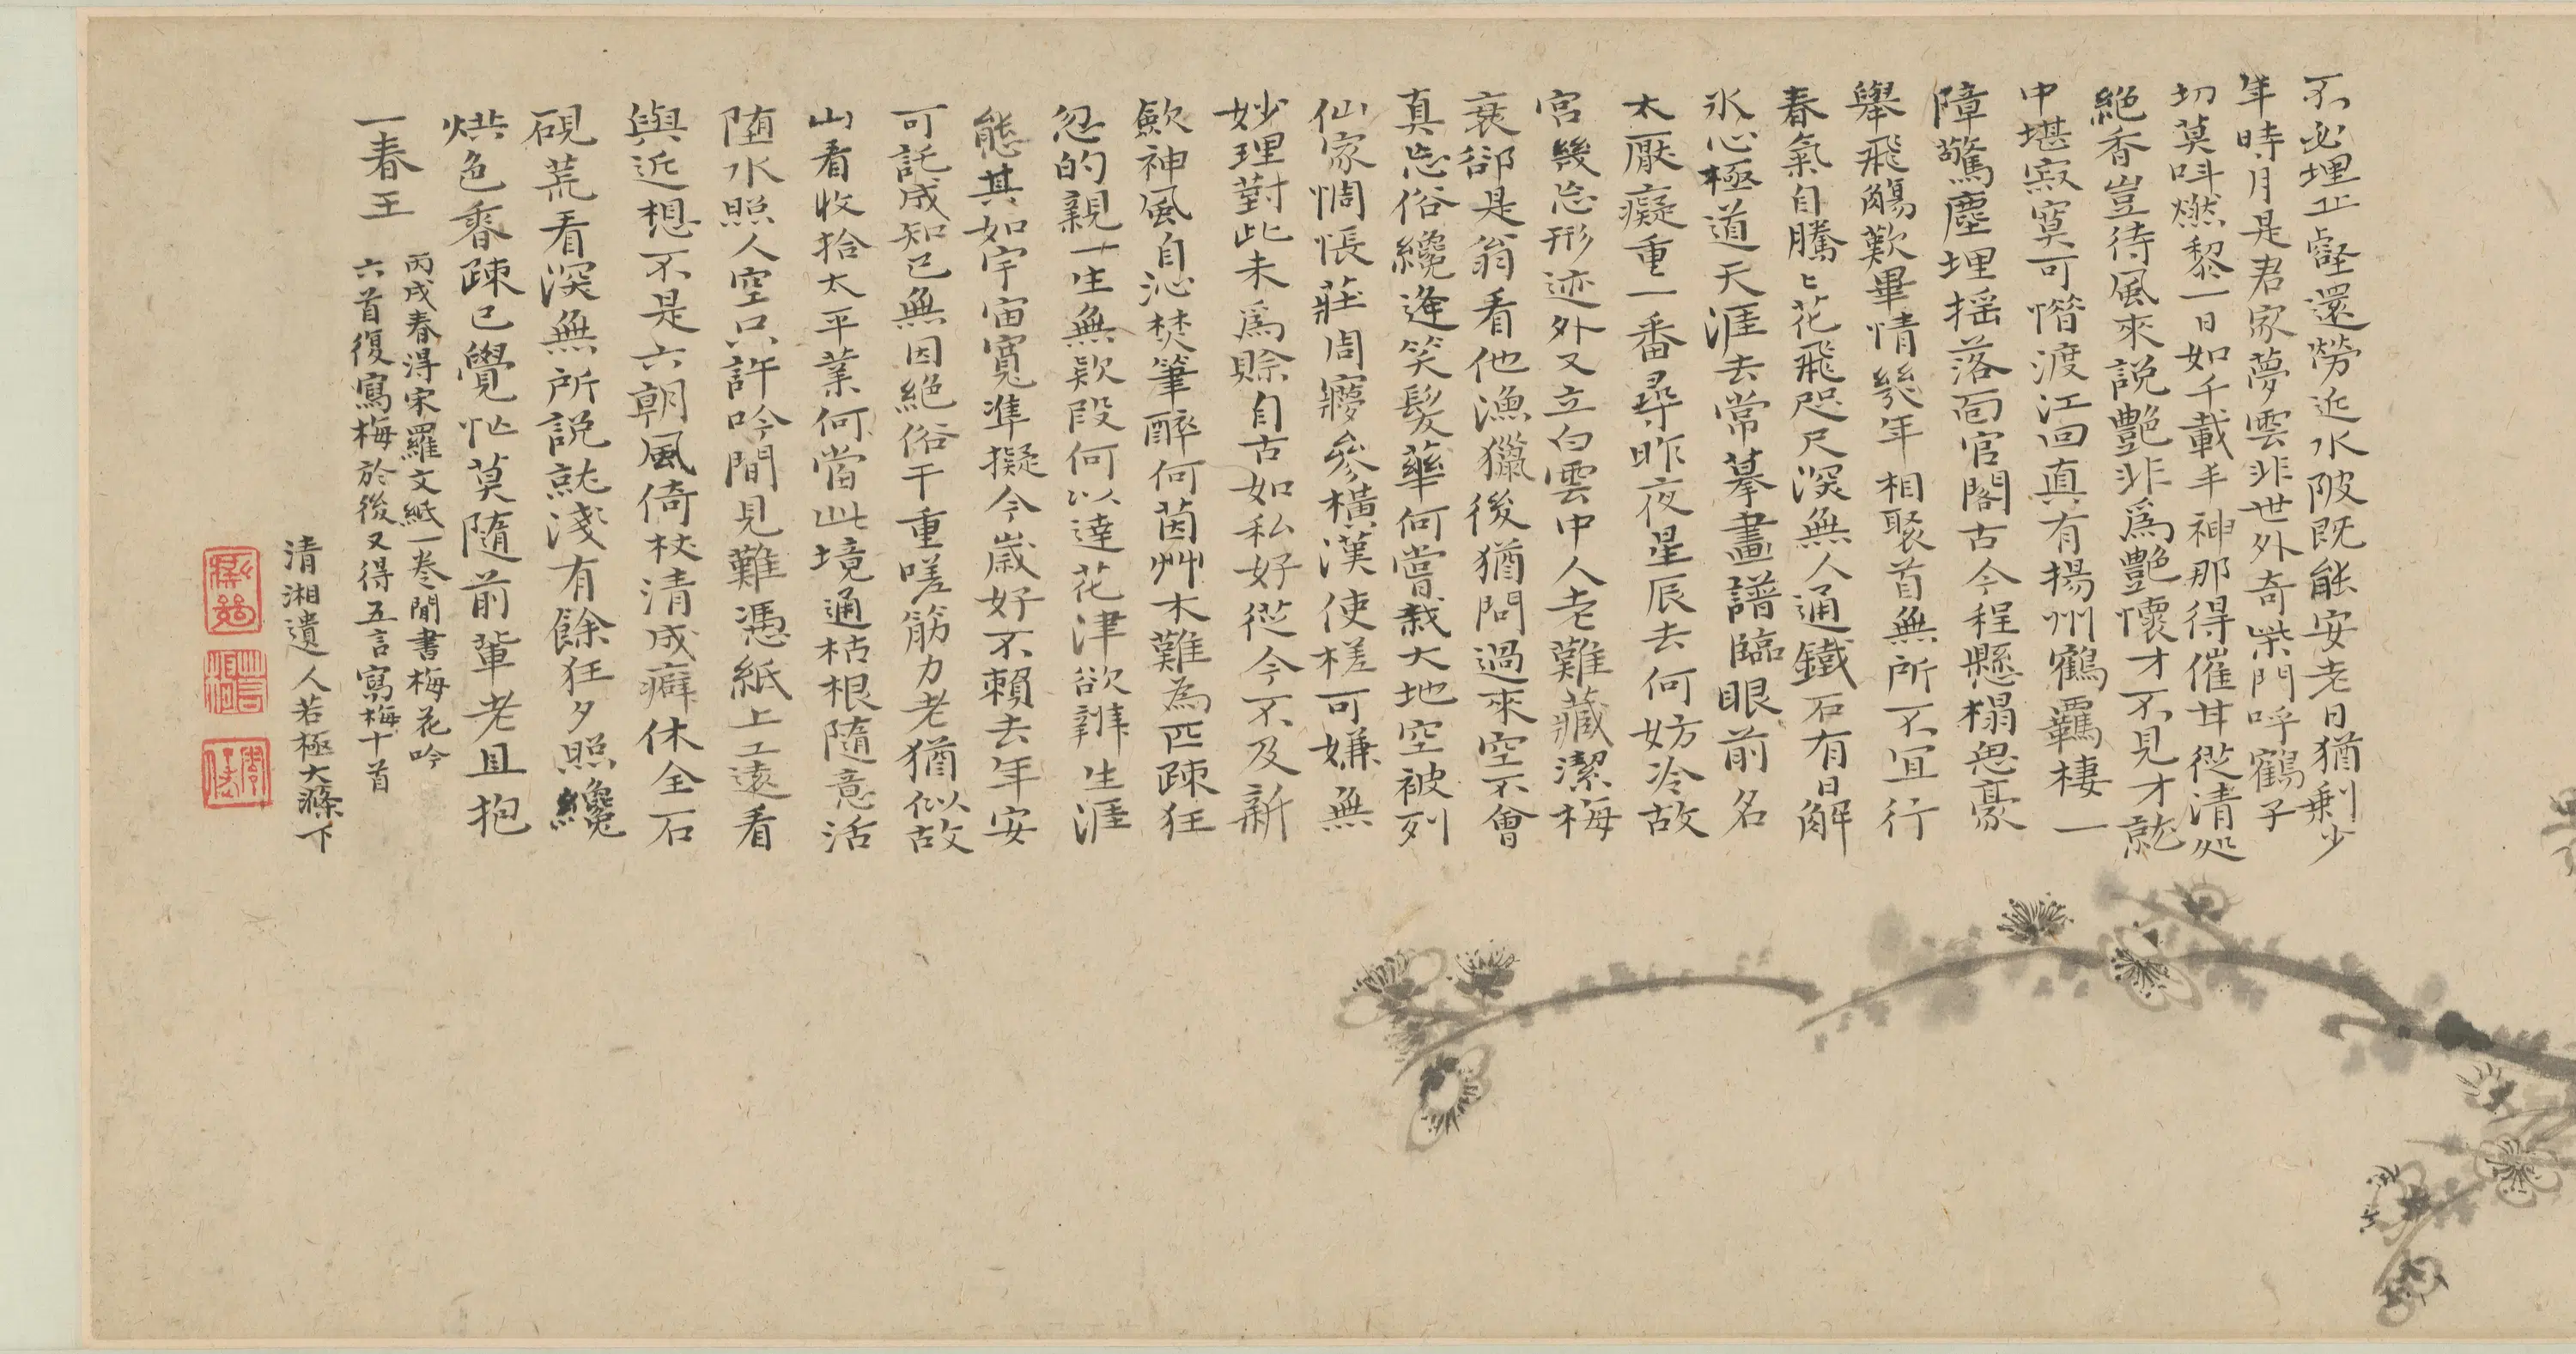 不必埋丘壑還勞近水陂既能安老日猶剩少
年時月是君家夢雲非世外奇柴門呼鶴子
切莫叫燃黎一日如千載羊神那得催甘從清處
絕香豈待風來說艷非為艷懷才不見才就
中堪寂寞可惜渡江回真有揚州鶴羈棲一
障驚塵埋搖落囘官閣古今程懸榻思豪
舉飛觴歎畢情幾年相聚首無所不宜行
春氣自騰〻花飛咫尺深無人通鐵石有日解
氷心極道天涯去常摹畫譜臨眼前名
太厭癡重一番尋昨夜星辰去何妨冷故
宮幾忘形迹外又立白雲中人老難藏潔梅
衰卻是翁看他漁獵後猶問過來空不會
真忘俗纔逢笑髮華何嘗栽大地空被列
仙家惆悵莊周寢參橫漢使槎可嫌無
妙理對此未為賒自古如私好從今不及新
歟神風自沁焚筆醉何茵艸木難為匹疎狂
忽的親一生無欵段何以達花津欲辨生涯
態其如宇宙寬準擬今歲好不賴去年安
可託成知己無因絕俗干重嗟筋力老猶似故
山看收拾太平業何當此境通枯根隨意活
隨水照人空只許吟間見難憑紙上工遠看
與近想不是六朝風倚杖清成癖休全石
硯荒看深無所說就淺有餘狂夕照纔
烘色香疎已覺忙莫隨前輩老且抱
一春王
丙戌春得宋羅文紙一卷閒書梅花吟
六首復寫梅於後又得五言寫梅十首
清湘遺人若極大滌下